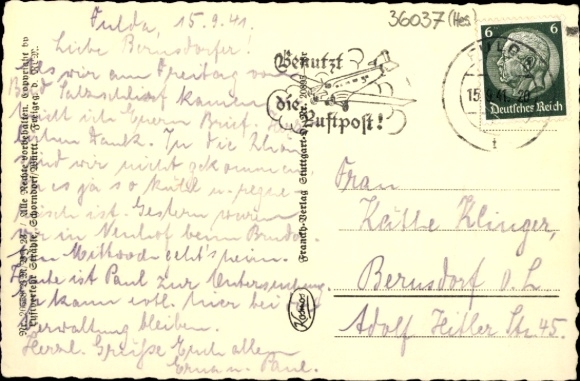 Fulda, 15.9.41.
Liebe Bernsdorfer!
Als wir am Freitag von
Bad Salzschlirf kamen
ich Euern Brief.
Dank. In die Rhön
sind wir nicht gekommen,
es ja so kühl u. regne-
risch ist. Gestern waren
wir in Neuhof beim Bruder
Mittwoch geht's heim.
Heute ist Paul zur Untersuchung.
Er kann evtl. hier bei der
Verwaltung bleiben.
Herzl. Grüße Euch allen
Erna u. Paul.
Alle Rechte vorbehalten. Copyright by
Luftverlehr Strähle, Schorndorf/Württ. Freigeg. d. RLM.
Franckh-Verlag Stuttgart-O.
Kosmos
36037 (Hes)
Benutzt
die
Luftpost!
FULDA
15.9.41.
6 6
Deutsches Reich
Frau
Käthe Klinger,
Bernsdorf O. L.
Adolf Hitler Str. 45.